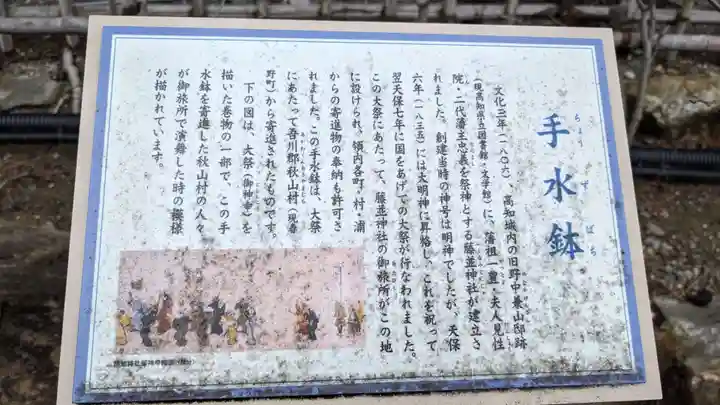 手水鉢
ちょうずばち
文化三年(一八〇六)、高知城内の旧野中兼山邸跡
(現高知県立図書館・文学館)に、藩祖一豊・夫人見性
院・二代藩主忠義を祭神とする藤並神社が建立さ
れました。創建当時の神号は明神でしたが、天保
六年(一八三五)には大明神に昇格し、これを祝って
翌天保七年に国をあげての大祭が行なわれました。
この大祭にあたって、藤並神社の御旅所がこの地
に設けられ、領内各町・村・浦
からの寄進物の奉納も許可さ
れました。この手水鉢は、大祭
にあたって吾川郡秋山村(現春
野町)から寄進されたものです。
下の図は、大祭(御神幸)を
描いた巻物の一部で、この手
水鉢を寄進した秋山村の人々
が御旅所で演舞した時の模様
が描かれています。